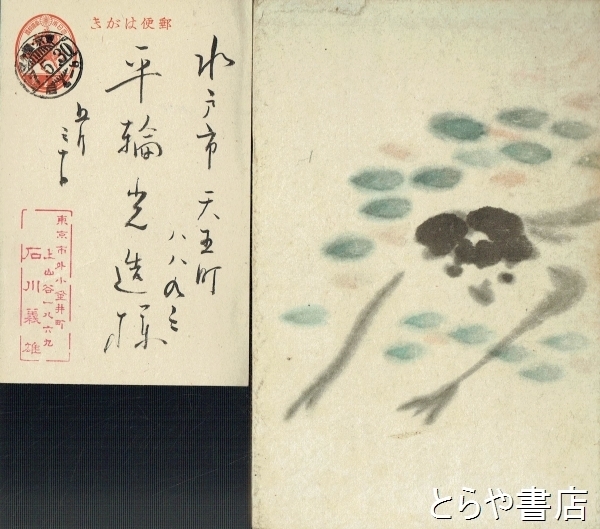 郵便はがき
水戸市天王町
八八ノ三
平輪光造様
五月
三十日
東京市外小金井町
上山谷一八六九
石川義雄
とらや書店